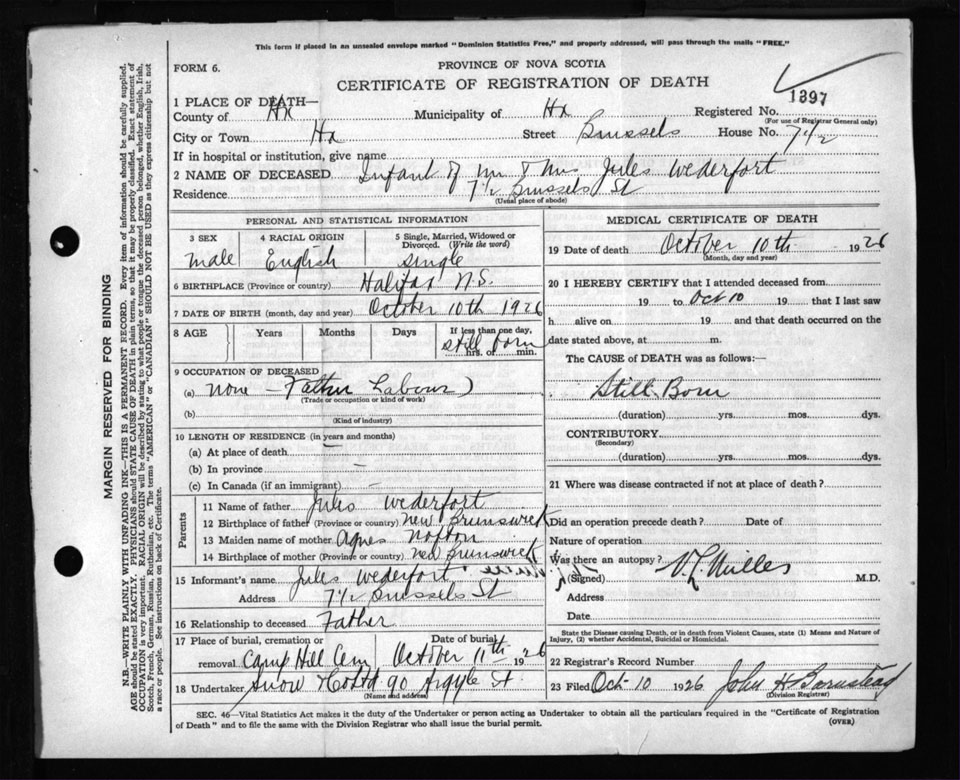 This form if placed in an unsealed envelope marked "Dominion Statistics Free," and properly addressed, will pass through the mails "FREE."
FORM 6.
PROVINCE OF NOVA SCOTIA
CERTIFICATE OF REGISTRATION OF DEATH
1 PLACE OF DEATH—
County of Hx Municipality of Hx Registered No. 1397
(For use of Registrar General only)
City or Town Hx Street Brussels House No. 7 1/2
If in hospital or institution, give name
2 NAME OF DECEASED Infant of Mr & Mrs Jules Wederfort
Residence 7 1/2 Brussels St
(Usual place of abode)
PERSONAL AND STATISTICAL INFORMATION
3 SEX 4 RACIAL ORIGIN 5 Single, Married, Widowed or Divorced. (Write the word)
Male English Single
6 BIRTHPLACE (Province or country) Halifax N.S.
7 DATE OF BIRTH (month, day and year) October 10th 1926
8 AGE Years Months Days If less than one day,
still born
hrs. or min.
9 OCCUPATION OF DECEASED
(a) none — Father Labour)
(Trade or occupation or kind of work)
(b)
(Kind of industry)
10 LENGTH OF RESIDENCE (in years and months)
(a) At place of death —
(b) In province —
(c) In Canada (if an immigrant) —
Parents
11 Name of father Jules Wederfort
12 Birthplace of father (Province or country) New Brunswick
13 Maiden name of mother Agnes
14 Birthplace of mother (Province or country) New Brunswick
15 Informant's name Jules Wederfort
Address 7 1/2 Brussels St
16 Relationship to deceased Father
17 Place of burial, cremation or removal Camp Hill Cem Date of burial October 11th 1926
18 Undertaker Snow & Co Ltd 90 Argyle St
(Name and address)
MEDICAL CERTIFICATE OF DEATH
19 Date of death October 10th 1926
(Month, day and year)
20 I HEREBY CERTIFY that I attended deceased from
19 to Oct 10 19 that I last saw
h alive on 19 and that death occurred on
date stated above, at m.
The CAUSE of DEATH was as follows:—
Still Born
(duration) yrs. mos. dys.
CONTRIBUTORY
(Secondary)
(duration) yrs. mos. dys.
21 Where was disease contracted if not at place of death?
Did an operation precede death? Date of
Nature of operation
Was there an autopsy?
(Signed) V.L. Miller M.D.
Address
Date
State the Disease causing Death, or in death from Violent Causes, state (1) Means and Nature of Injury, (2) whether Accidental, Suicidal or Homicidal.
22 Registrar's Record Number
23 Filed Oct 10 1926 John H Barnstead
(Division Registrar)
SEC. 46—Vital Statistics Act makes it the duty of the Undertaker or person acting as Undertaker to obtain all the particulars required in the "Certificate of Registration of Death" and to file the same with the Division Registrar who shall issue the burial permit.
(OVER)
MARGIN RESERVED FOR BINDING
N.B.—WRITE PLAINLY WITH UNFADING INK—THIS IS A PERMANENT RECORD. Every item of information should be carefully supplied.
AGE should be stated EXACTLY. PHYSICIANS should STATE CAUSE OF DEATH in plain terms, so that it may be properly classified. Exact statement of
OCCUPATION is very important. RACIAL ORIGIN will be described by stating to what people or tongue the deceased person belonged, whether English, Irish,
Scotch, French, German, Russian, Ruthenian, etc. The terms "AMERICAN" or "CANADIAN" SHOULD NOT BE USED as they express citizenship but not
a race or people. See instructions on back of Certificate.